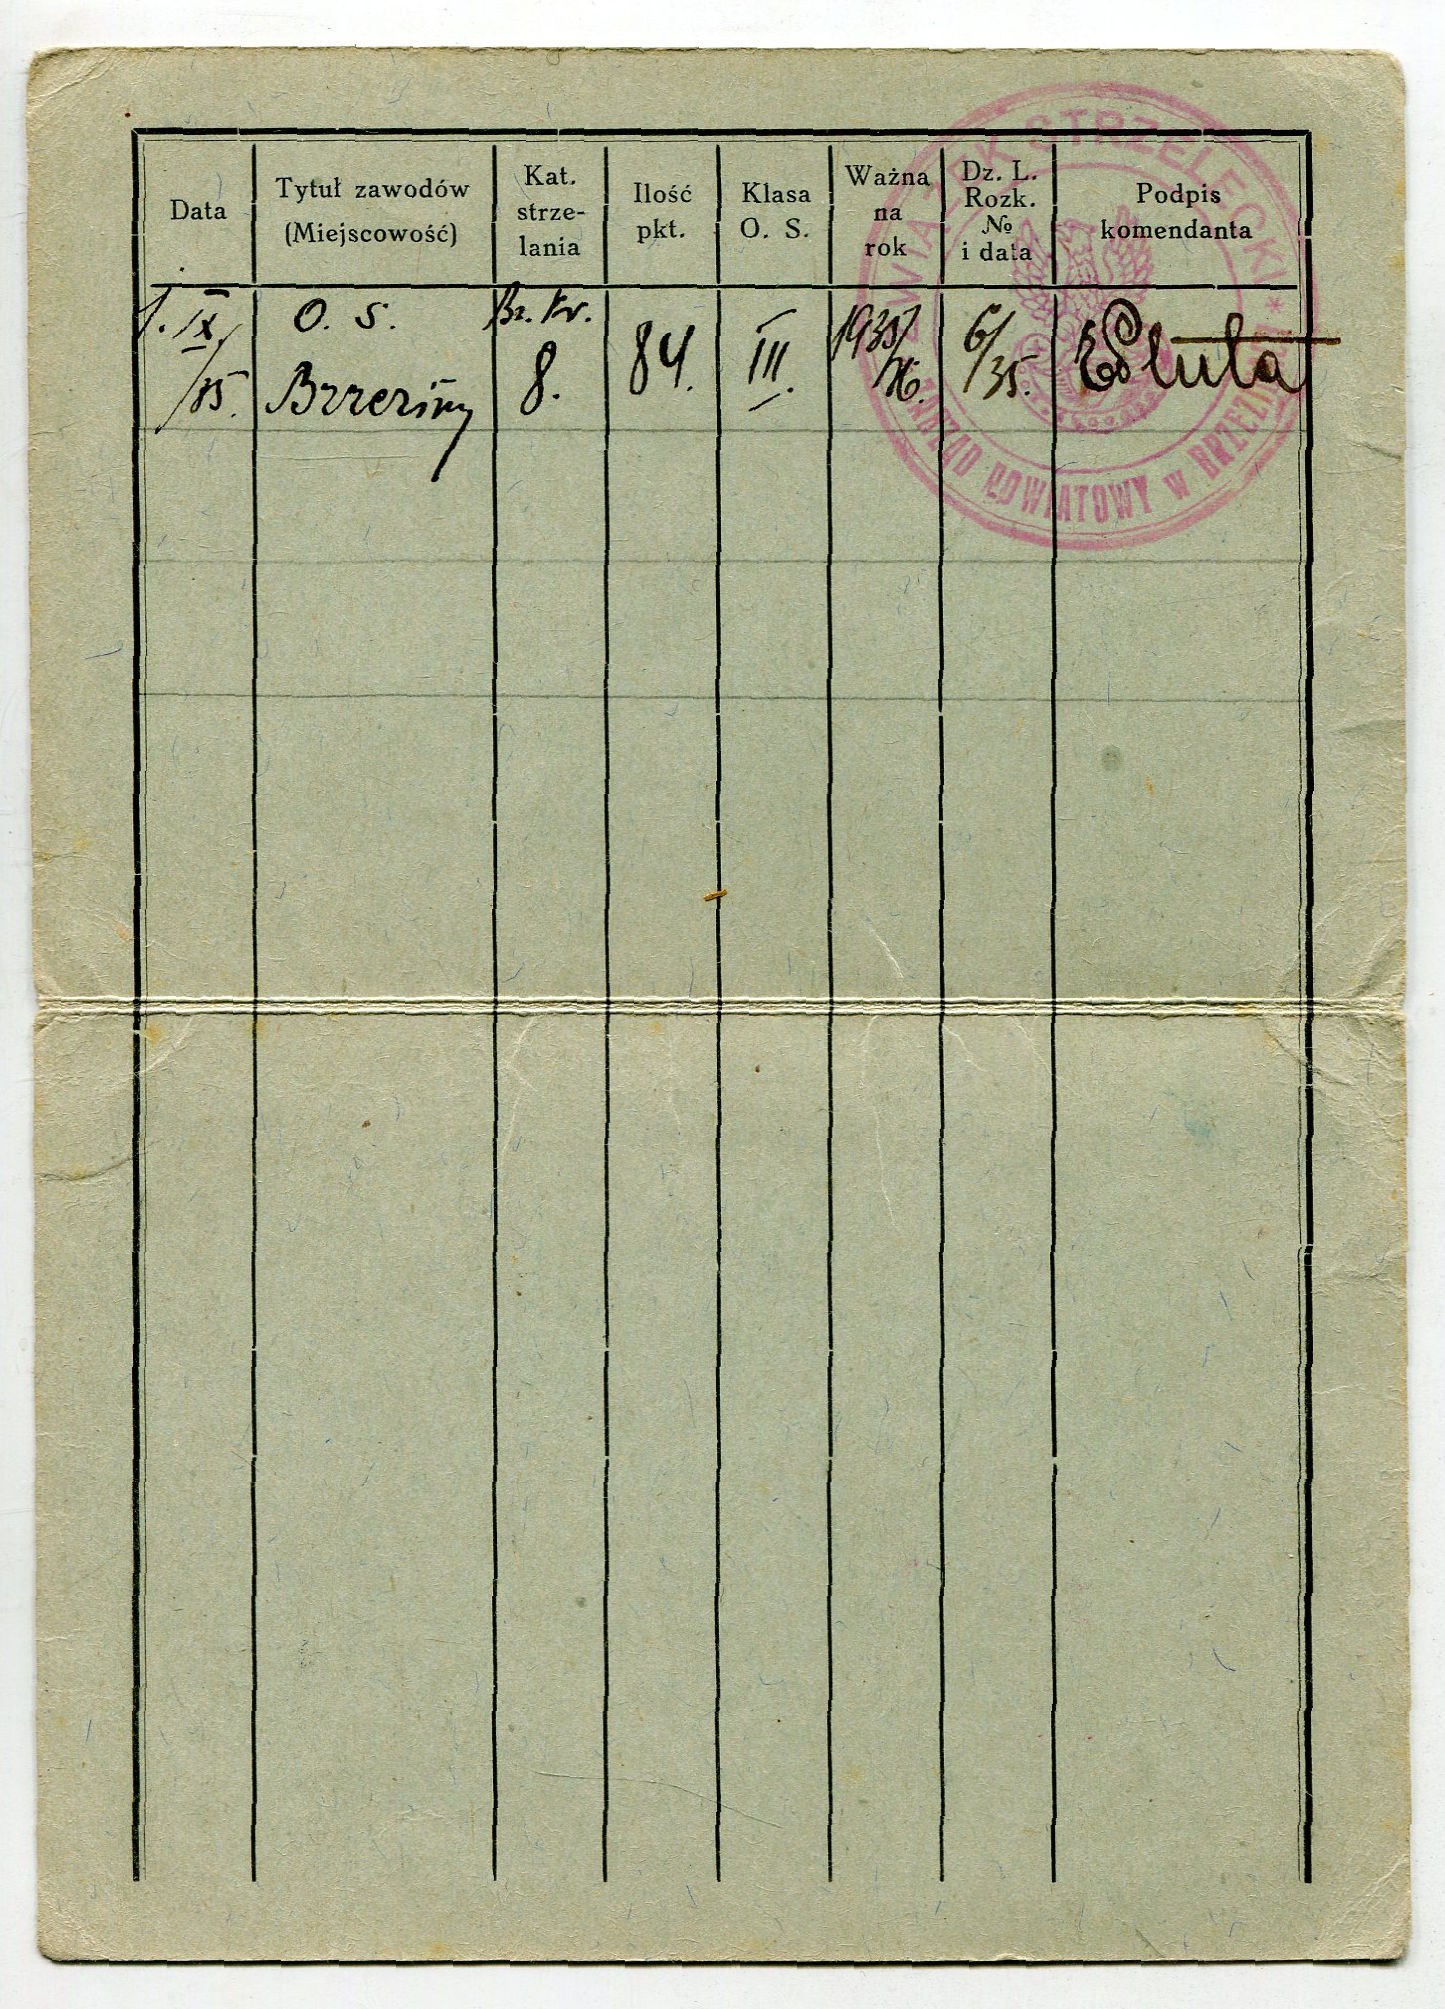 Data
Tytuł zawodów
(Miejscowość)
Kat.
strze-
lania
Ilość
pkt.
Klasa
O. S.
Ważna
na
rok
Dz. L.
Rozk.
№
i data
Podpis
komendanta
1. IX
/35.
O. S.
Brzeziny
Br. Kr.
8.
84.
III.
1935/
36.
6/
/35.
ZWIĄZEK STRZELECKI *
ZARZĄD POWIATOWY w BRZEZINACH